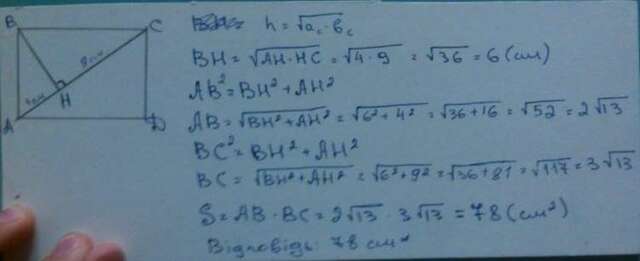 B C
9 см
4 см
H
A D
h = √a꜀·b꜀
BH = √AH·HC = √4·9 = √36 = 6 (см)
AB² = BH² + AH²
AB = √BH²+AH² = √6²+4² = √36+16 = √52 = 2√13
BC² = BH² + AH²
BC = √BH²+AH² = √6²+9² = √36+81 = √117 = 3√13
S = AB · BC = 2√13 · 3√13 = 78 (см²)
Відповідь: 78 см²